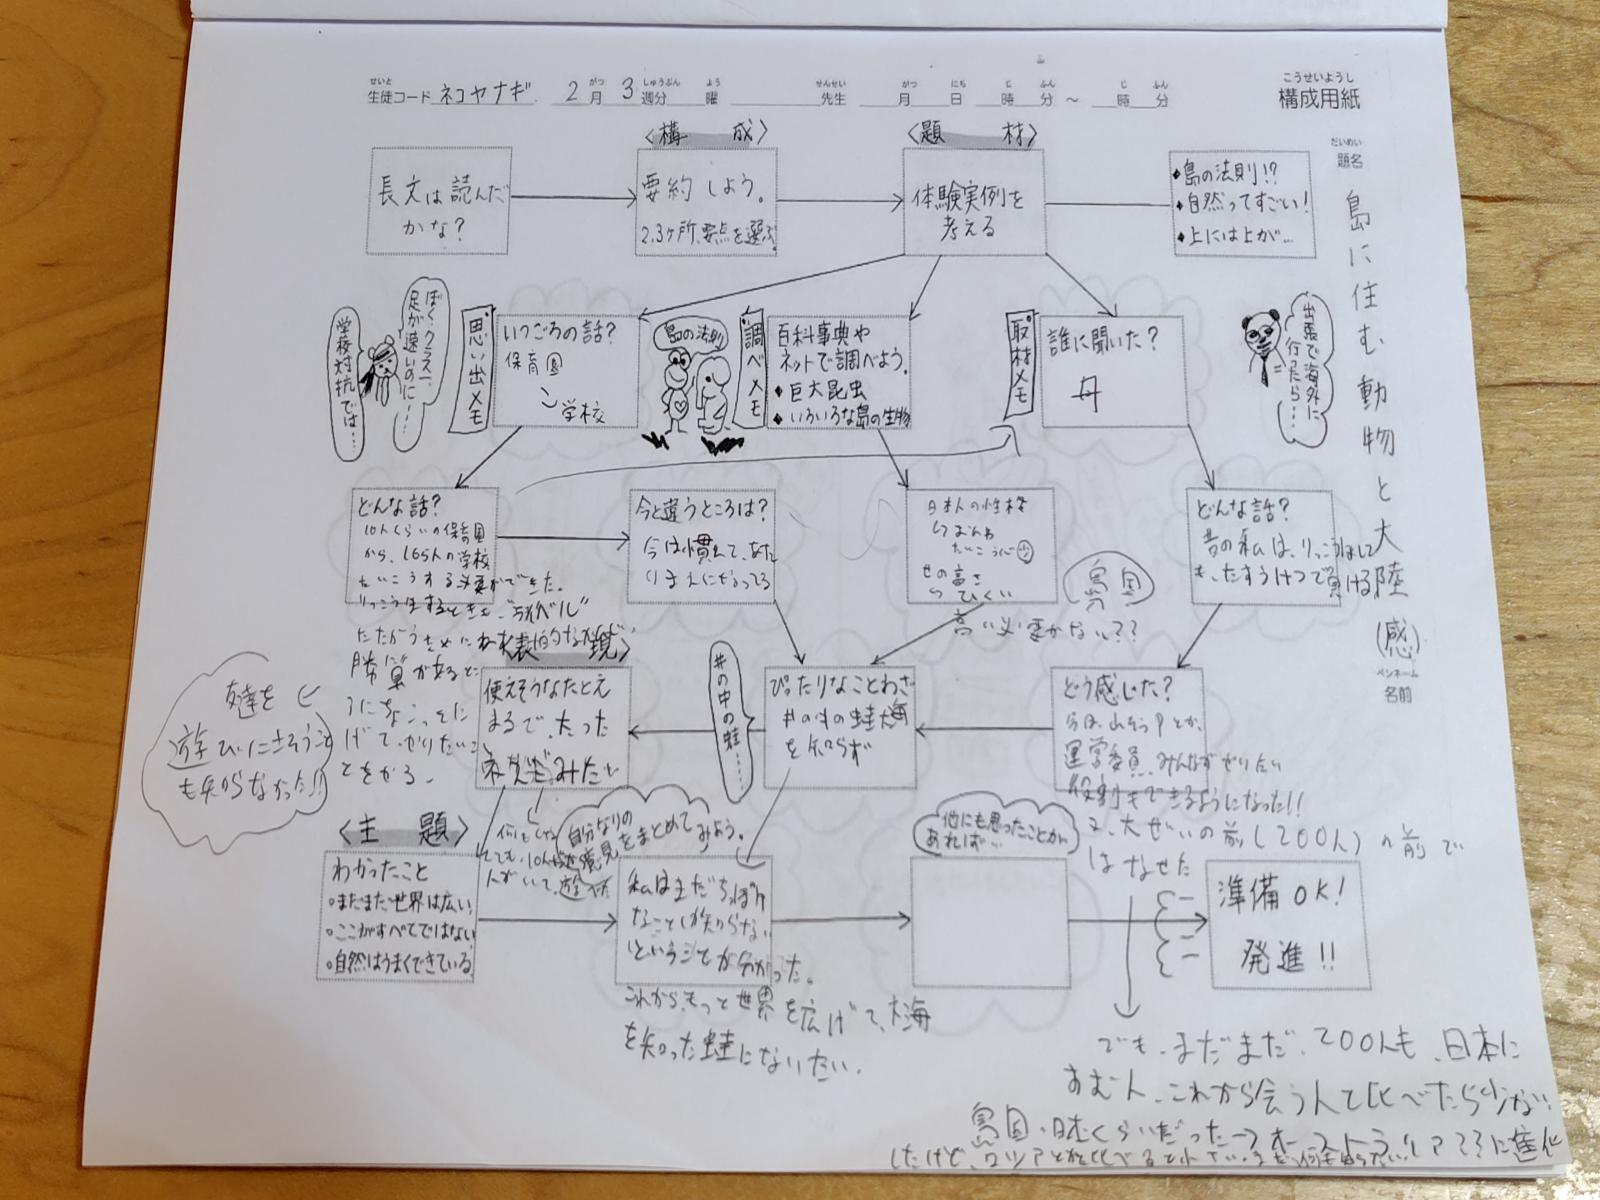 せいと
生徒コード ネコヤナギ 2月 3週分 曜 先生 月 日 時 分 ～ 時 分
がつ しゅうぶん よう せんせい がつ にち じ ふん じ ふん
こうせいようし
構成用紙
だいめい
題名
島に住む動物と大陸(感)
ペンネーム
名前
〈構 成〉
〈題 材〉
長文は読んだ
かな？
要約しよう。
2,3ヶ所、要点を選ぶ。
体験実例を
考える
◆島の法則!?
◆自然ってすごい！
◆上には上が…
ぼく、クラス一、
足が速いのに…
学校対抗では…
思い出メモ
いつごろの話？
保育園
学校
島の法則
調べメモ
百科事典や
ネットで調べよう。
◆巨大昆虫
◆いろいろな島の生物
取材メモ
誰に聞いた？
母
出張で海外に
行ったら…
どんな話？
10人くらいの保育園
から、165人の学校
たいこうする必要ができた。
りっこうほするときも、"ライバル"
勝算があると
うにちょこっとた
げて、やりたいこ
とをやる。
今と違うところは？
今は慣れて、あた
りまえになってる
日本人の性格
せの高さ
ひくい
高い必要がない??
島国
どんな話？
昔の私は、りっこうほして
も、たすうけつで負ける
友達を
遊びにさそうこと
も知らなかった!!
〈表現〉
使えそうなたとえ
まるで、たった
井の中の蛙……
ぴったりなことわざ
井の中の蛙大海
を知らず
どう感じた？
運営委員、みんながやりたい
役割もできるようになった!!
2、大ぜいの前(200人)の前で
はなせた
〈主 題〉
わかったこと
○まだまだ世界は広い。
○ここがすべてではない
○自然はうまくできている。
自分なりの
意見をまとめてみよう。
私はまだちっぽけ
なことしか知らない
ということが分かった。
これから、もっと世界を広げて、大海
を知った蛙になりたい。
他にも思ったことが
あれば…
準備OK!
発進!!
でも、まだまだ、200人も、日本に
すむ人、これから会う人と比べたら少ない